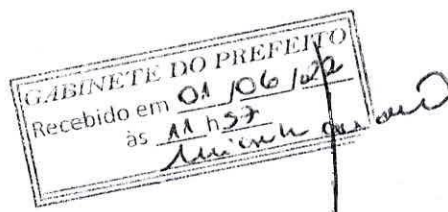 GABINETE DO PREFEITO
Recebido em 01/06/022
às 11 h 57